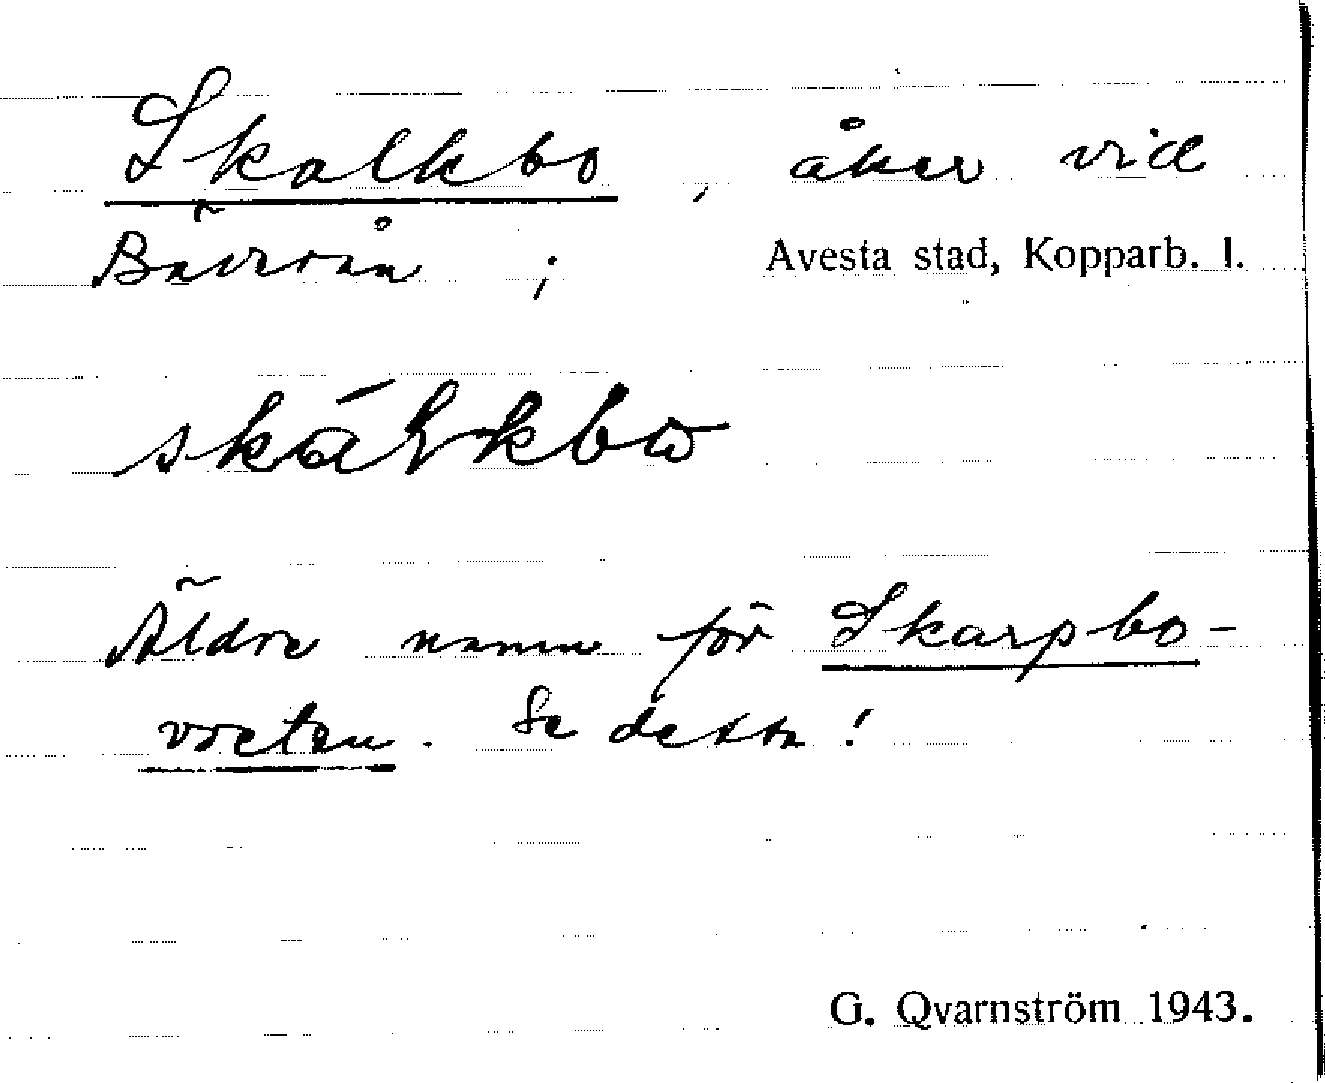 Skalkbo, åker vid
Bäverån; Avesta stad, Kopparb. l.
skálkbω
Äldre namn för Skarpbo-
vreten. Se detta!
G. Qvarnström 1943.